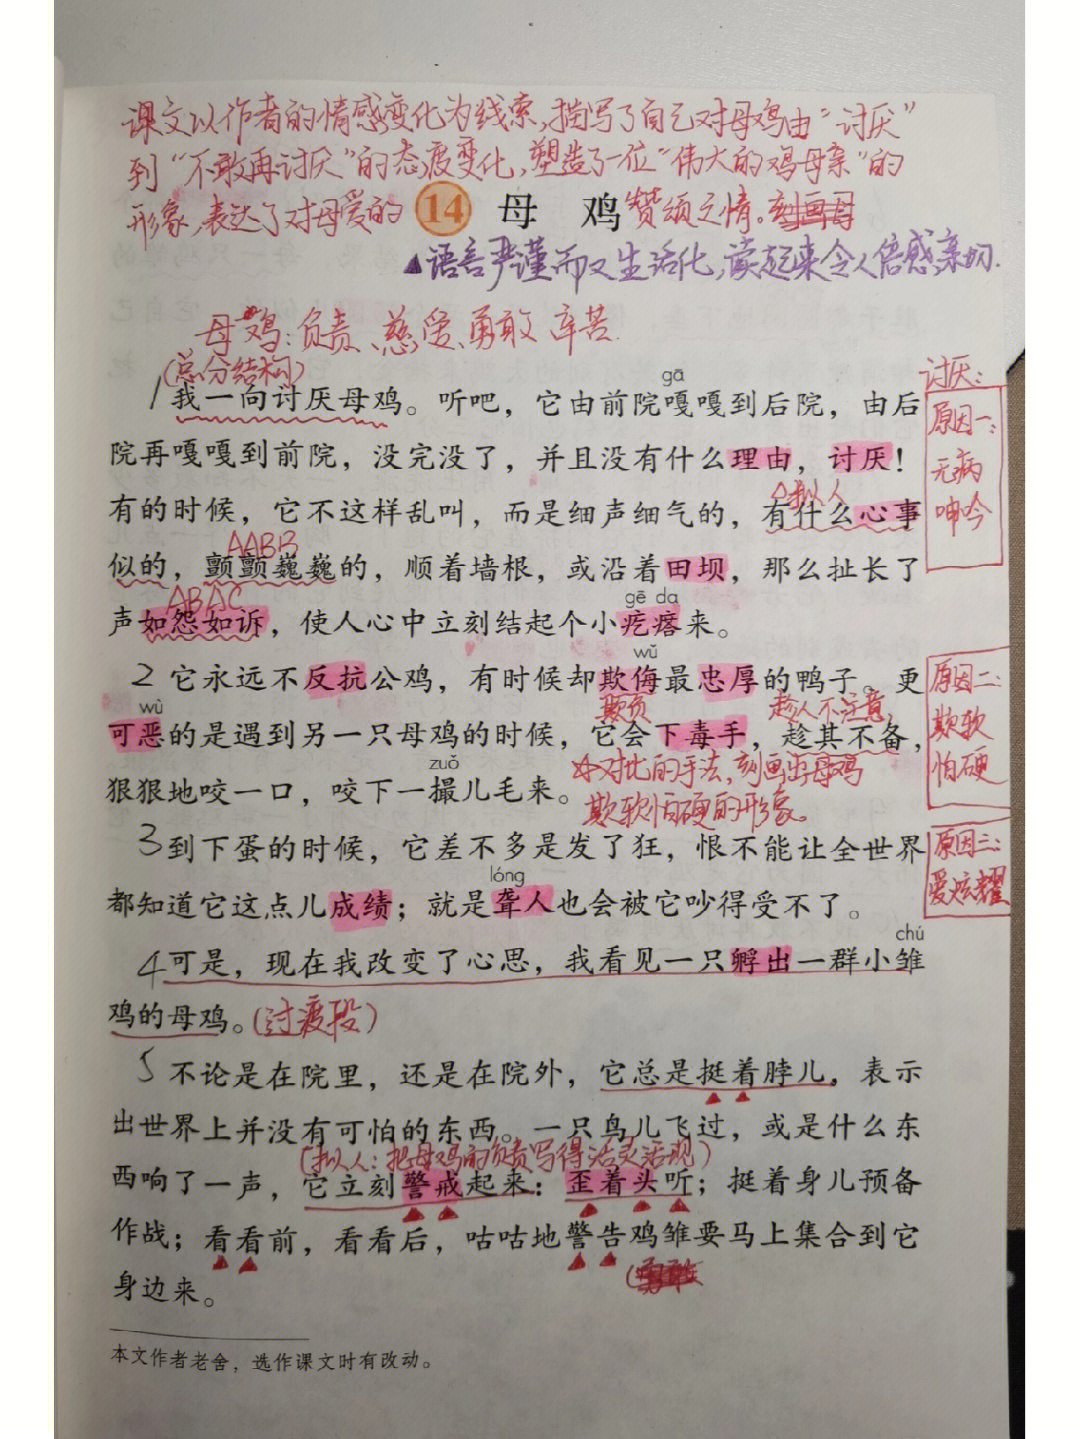 课文以作者的情感变化为线索,描写了自己对母鸡由“讨厌”
到“不敢再讨厌”的态度变化,塑造了一位“伟大的鸡母亲”的
形象,表达了对母爱的 14 母 鸡 赞颂之情。刻画母
▲语言严谨而又生活化,读起来令人倍感亲切.
母鸡:负责、慈爱、勇敢、辛苦.
(总分结构)
讨厌:
gā
1我一向讨厌母鸡。听吧,它由前院嘎嘎到后院,由后
原因一:
院再嘎嘎到前院,没完没了,并且没有什么理由,讨厌!
无病
呻吟
△拟人
有的时候,它不这样乱叫,而是细声细气的,有什么心事
AABB
似的,颤颤巍巍的,顺着墙根,或沿着田坝,那么扯长了
ABAC
gē da
声如怨如诉,使人心中立刻结起个小疙瘩来。
wǔ
2它永远不反抗公鸡,有时候却欺侮最忠厚的鸭子。更
原因二:
欺软
怕硬
wù
欺负
趁人不注意,
可恶的是遇到另一只母鸡的时候,它会下毒手,趁其不备,
zuǒ
对比的手法,刻画出母鸡
狠狠地咬一口,咬下一撮儿毛来。
欺软怕硬的形象。
3到下蛋的时候,它差不多是发了狂,恨不能让全世界
原因三:
爱炫耀
lóng
都知道它这点儿成绩;就是聋人也会被它吵得受不了。
chú
4可是,现在我改变了心思,我看见一只孵出一群小雏
鸡的母鸡。(过渡段)
5不论是在院里,还是在院外,它总是挺着脖儿,表示
出世界上并没有可怕的东西。一只鸟儿飞过,或是什么东
(拟人:把母鸡的负责写得活灵活现)
西响了一声,它立刻警戒起来:歪着头听;挺着身儿预备
作战;看看前,看看后,咕咕地警告鸡雏要马上集合到它
身边来。
本文作者老舍,选作课文时有改动。